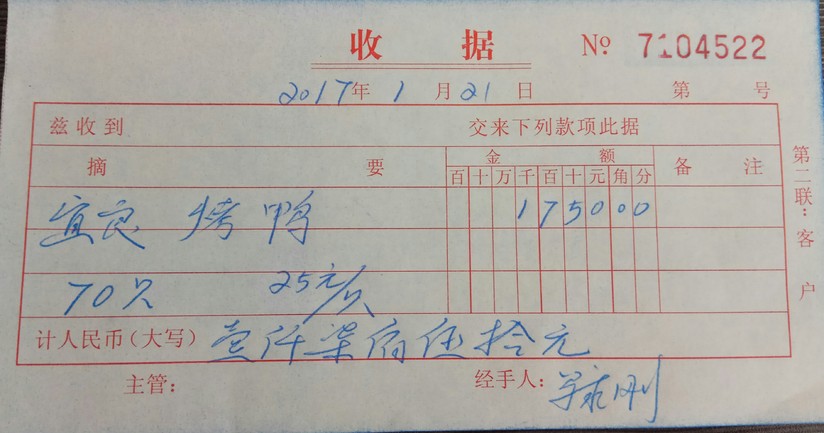 收 据 № 7104522
2017年 1 月 21 日 第 号
兹收到 交来下列款项此据
摘 要 金 额 备 注
百 十 万 千 百 十 元 角 分
宜良 烤鸭 1 7 5 0 0 0
70只 25元/只
计人民币(大写) 壹仟柒佰伍拾元
主管: 经手人: 刚
第二联:客户